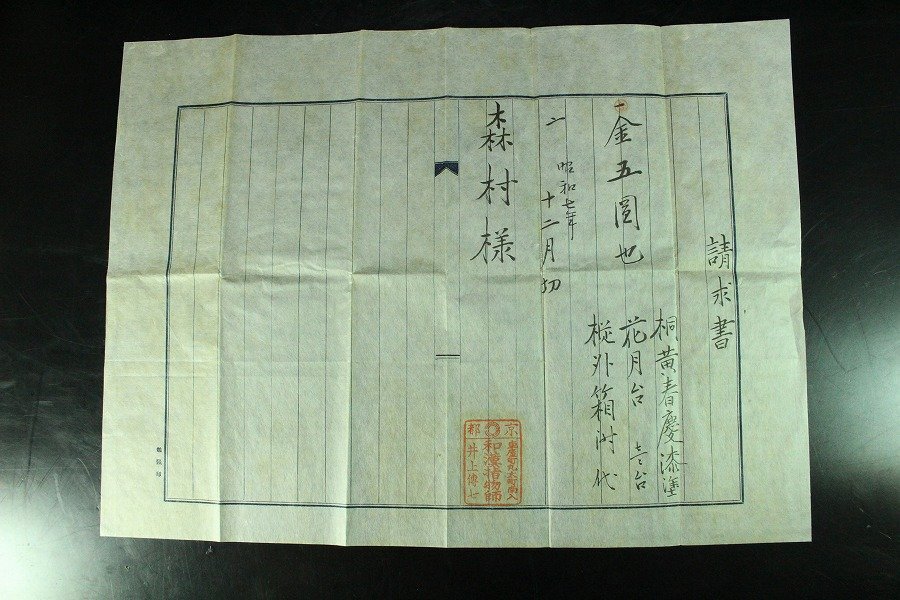 請求書
一金五圓也
桐黄春慶漆塗
花月台 壱台
樅外箱附代
昭和七年
十二月
森村様
京都
和漢指物師
井上傳七